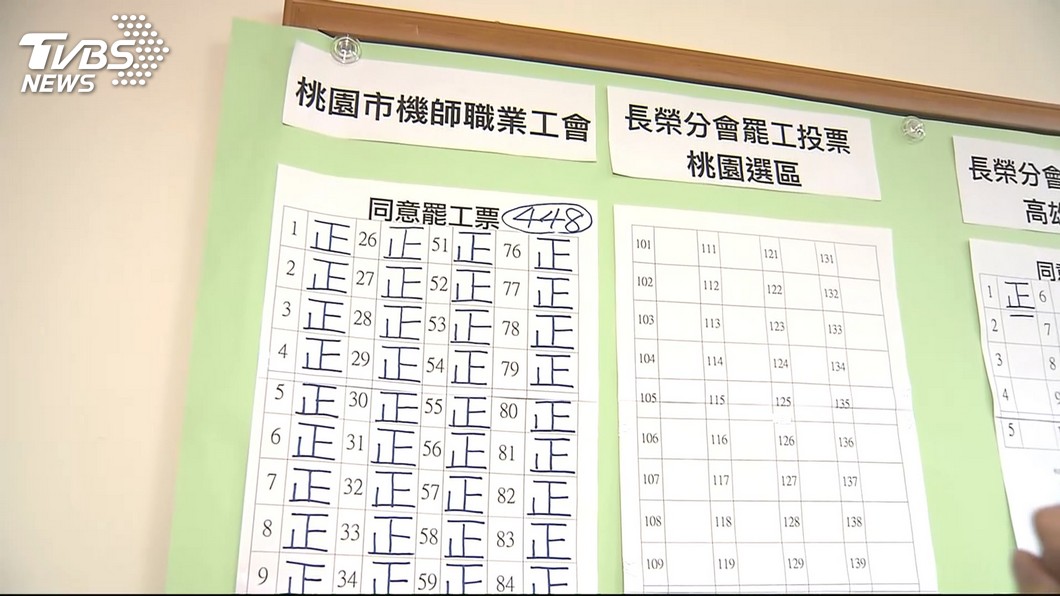 TVBS
NEWS
桃園市機師職業工會
長榮分會罷工投票
桃園選區
長榮分會
高雄
同意罷工票 448
1 正 26 正 51 正 76 正
2 正 27 正 52 正 77 正
3 正 28 正 53 正 78 正
4 正 29 正 54 正 79 正
5 正 30 正 55 正 80 正
6 正 31 正 56 正 81 正
7 正 32 正 57 正 82 正
8 正 33 正 58 正 83 正
9 正 34 正 59 正 84 正
101 111 121 131
102 112 122 132
103 113 123 133
104 114 124 134
105 115 125 135
106 116 126 136
107 117 127 137
108 118 128 138
109 119 129 139
同
1 正 6
2 7
3 8
4 9
5